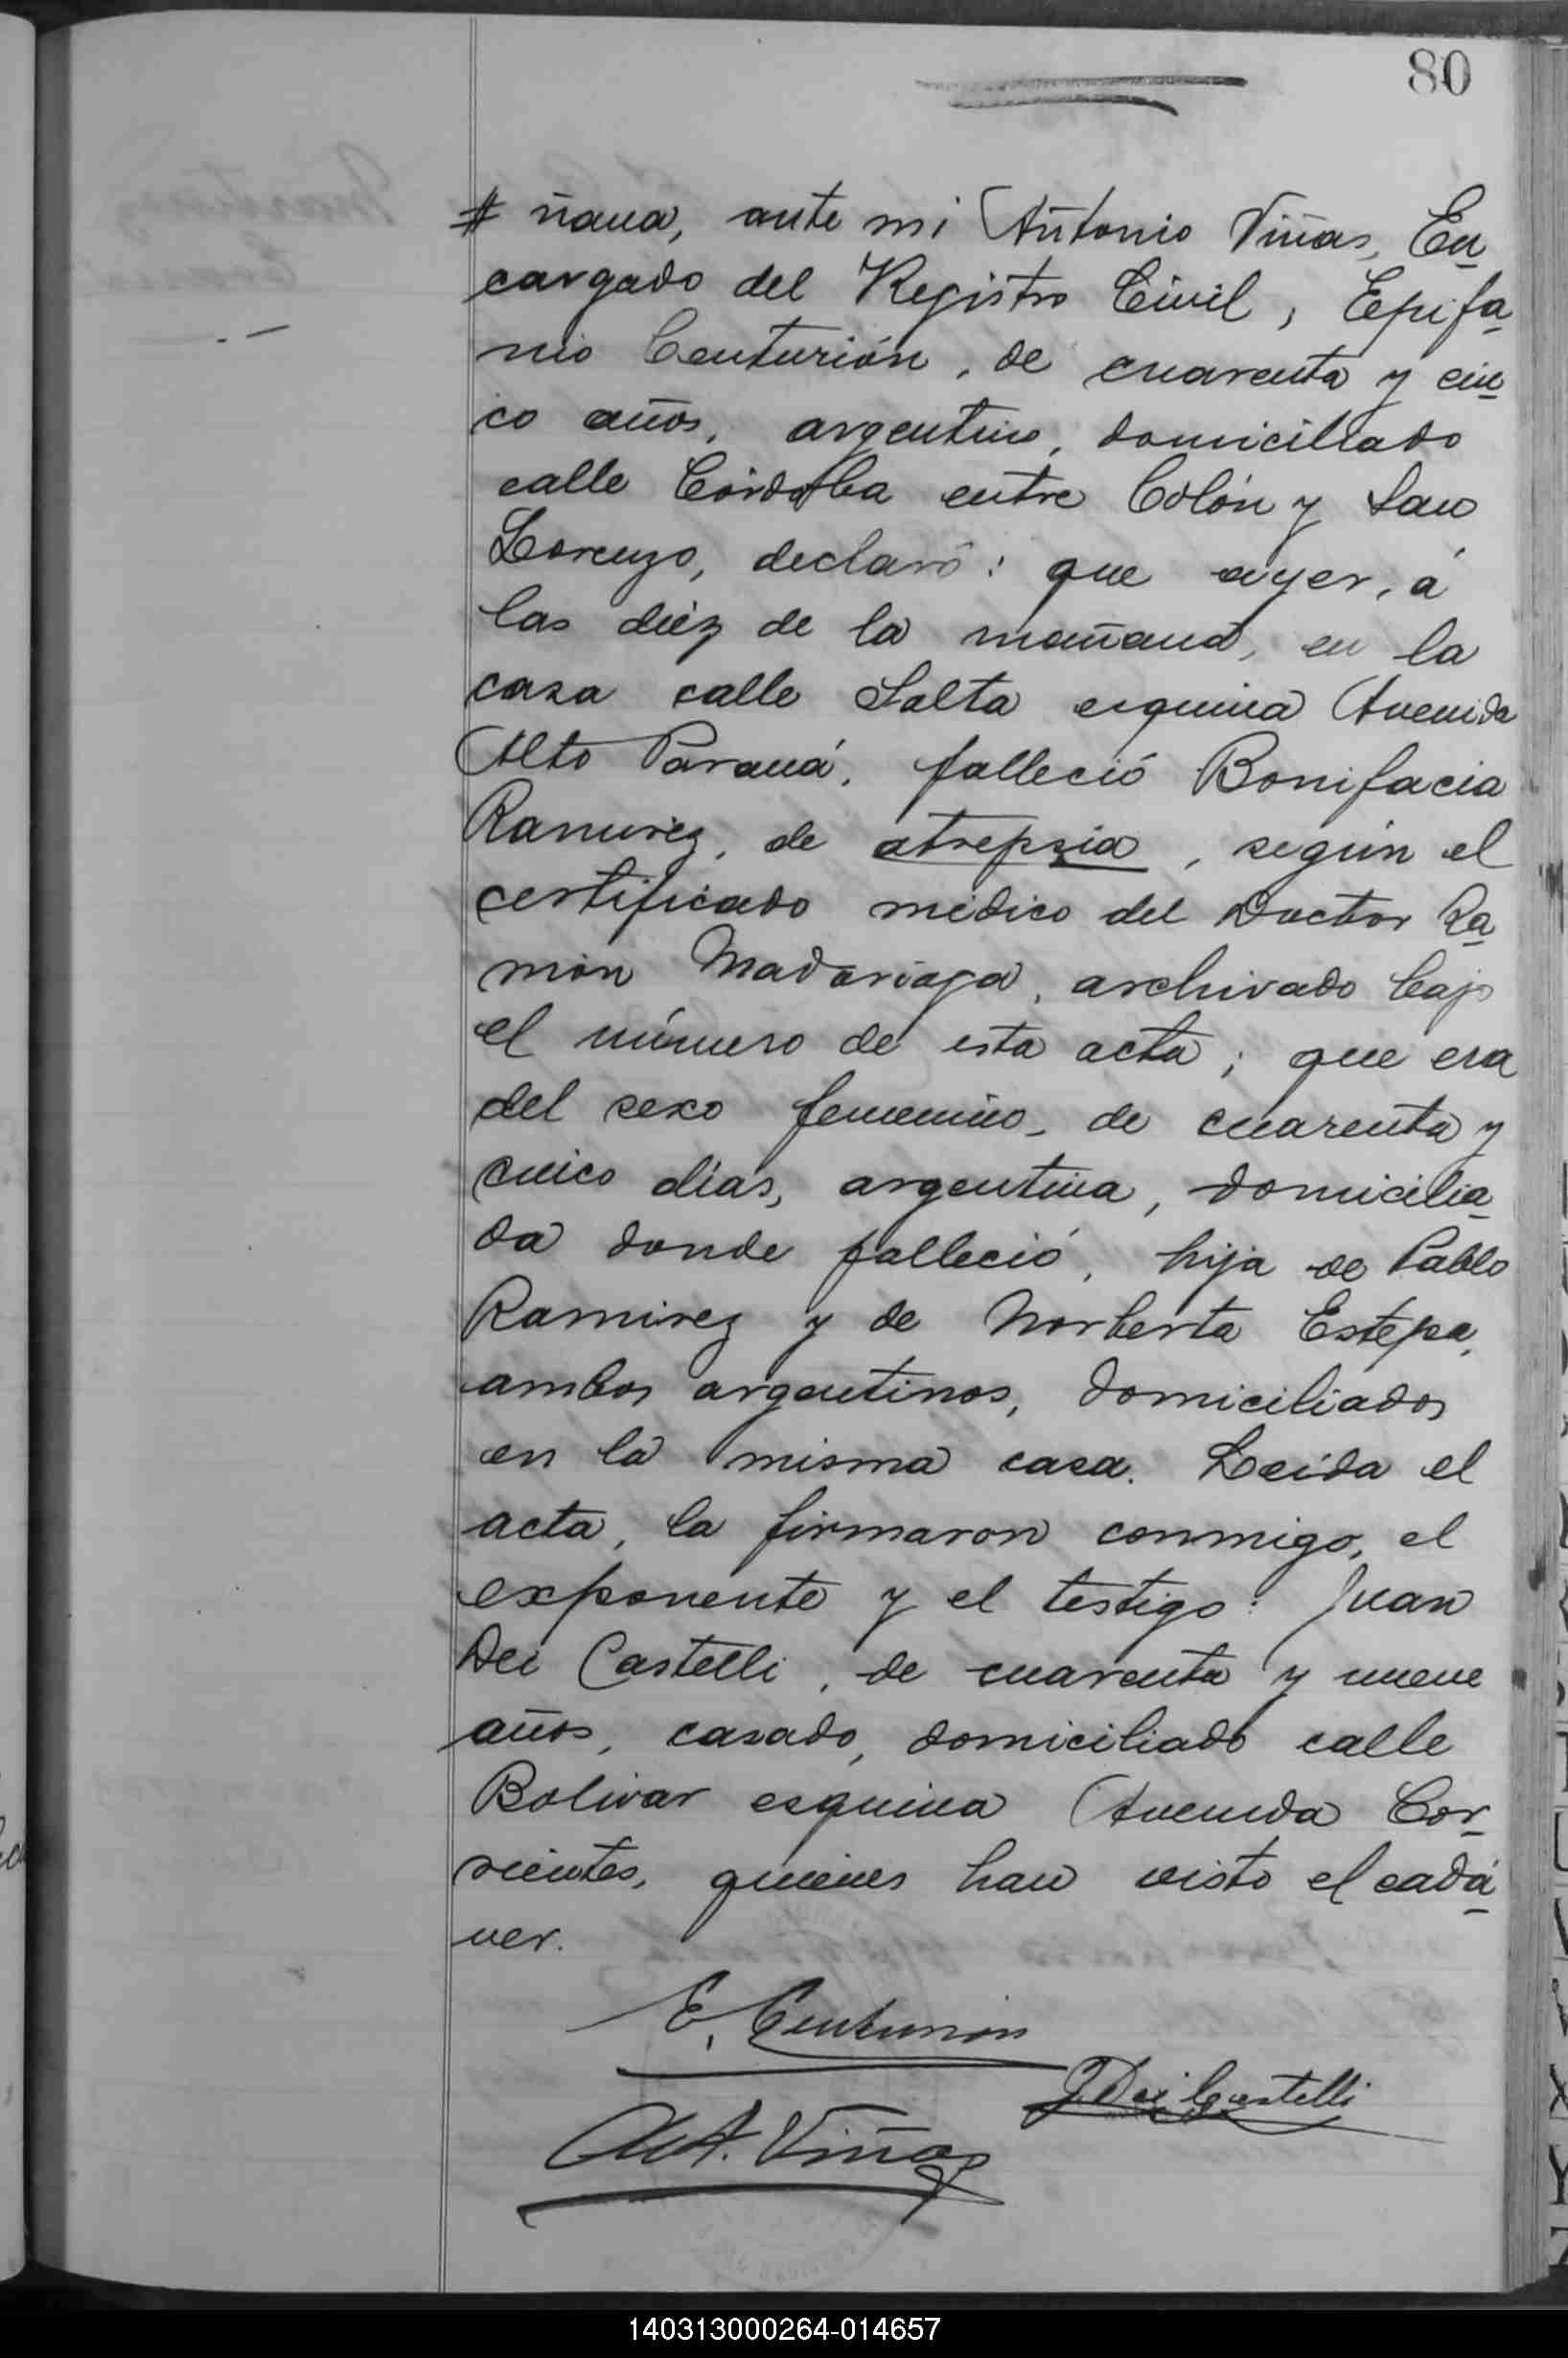 80
# ñana, ante mi Antonio Viñas, En
cargado del Registro Civil, Epifa
nio Centurión, de cuarenta y cin
co años, argentino, domiciliado
calle Córdoba entre Colón y San
Lorenzo, declaró: que ayer, á
las diez de la mañana, en la
casa calle Salta esquina Avenida
Alto Paraná, falleció Bonifacia
Ramirez, de atrepsia, según el
certificado médico del Doctor Ra
món Madariaga, archivado bajo
el número de esta acta; que era
del sexo femenino, de cuarenta y
cinco dias, argentina, domicilia
da donde falleció, hija de Pablo
Ramirez y de Norberta Estepa,
ambos argentinos, domiciliados
en la misma casa. Leida el
acta, la firmaron conmigo, el
exponente y el testigo: Juan
Dei Castelli, de cuarenta y nueve
años, casado, domiciliado calle
Bolivar esquina Avenida Cor
rientes, quienes han visto el cadá
ver.
E. Centurion
J Dei Castelli
Ant. Viñas
140313000264-014657